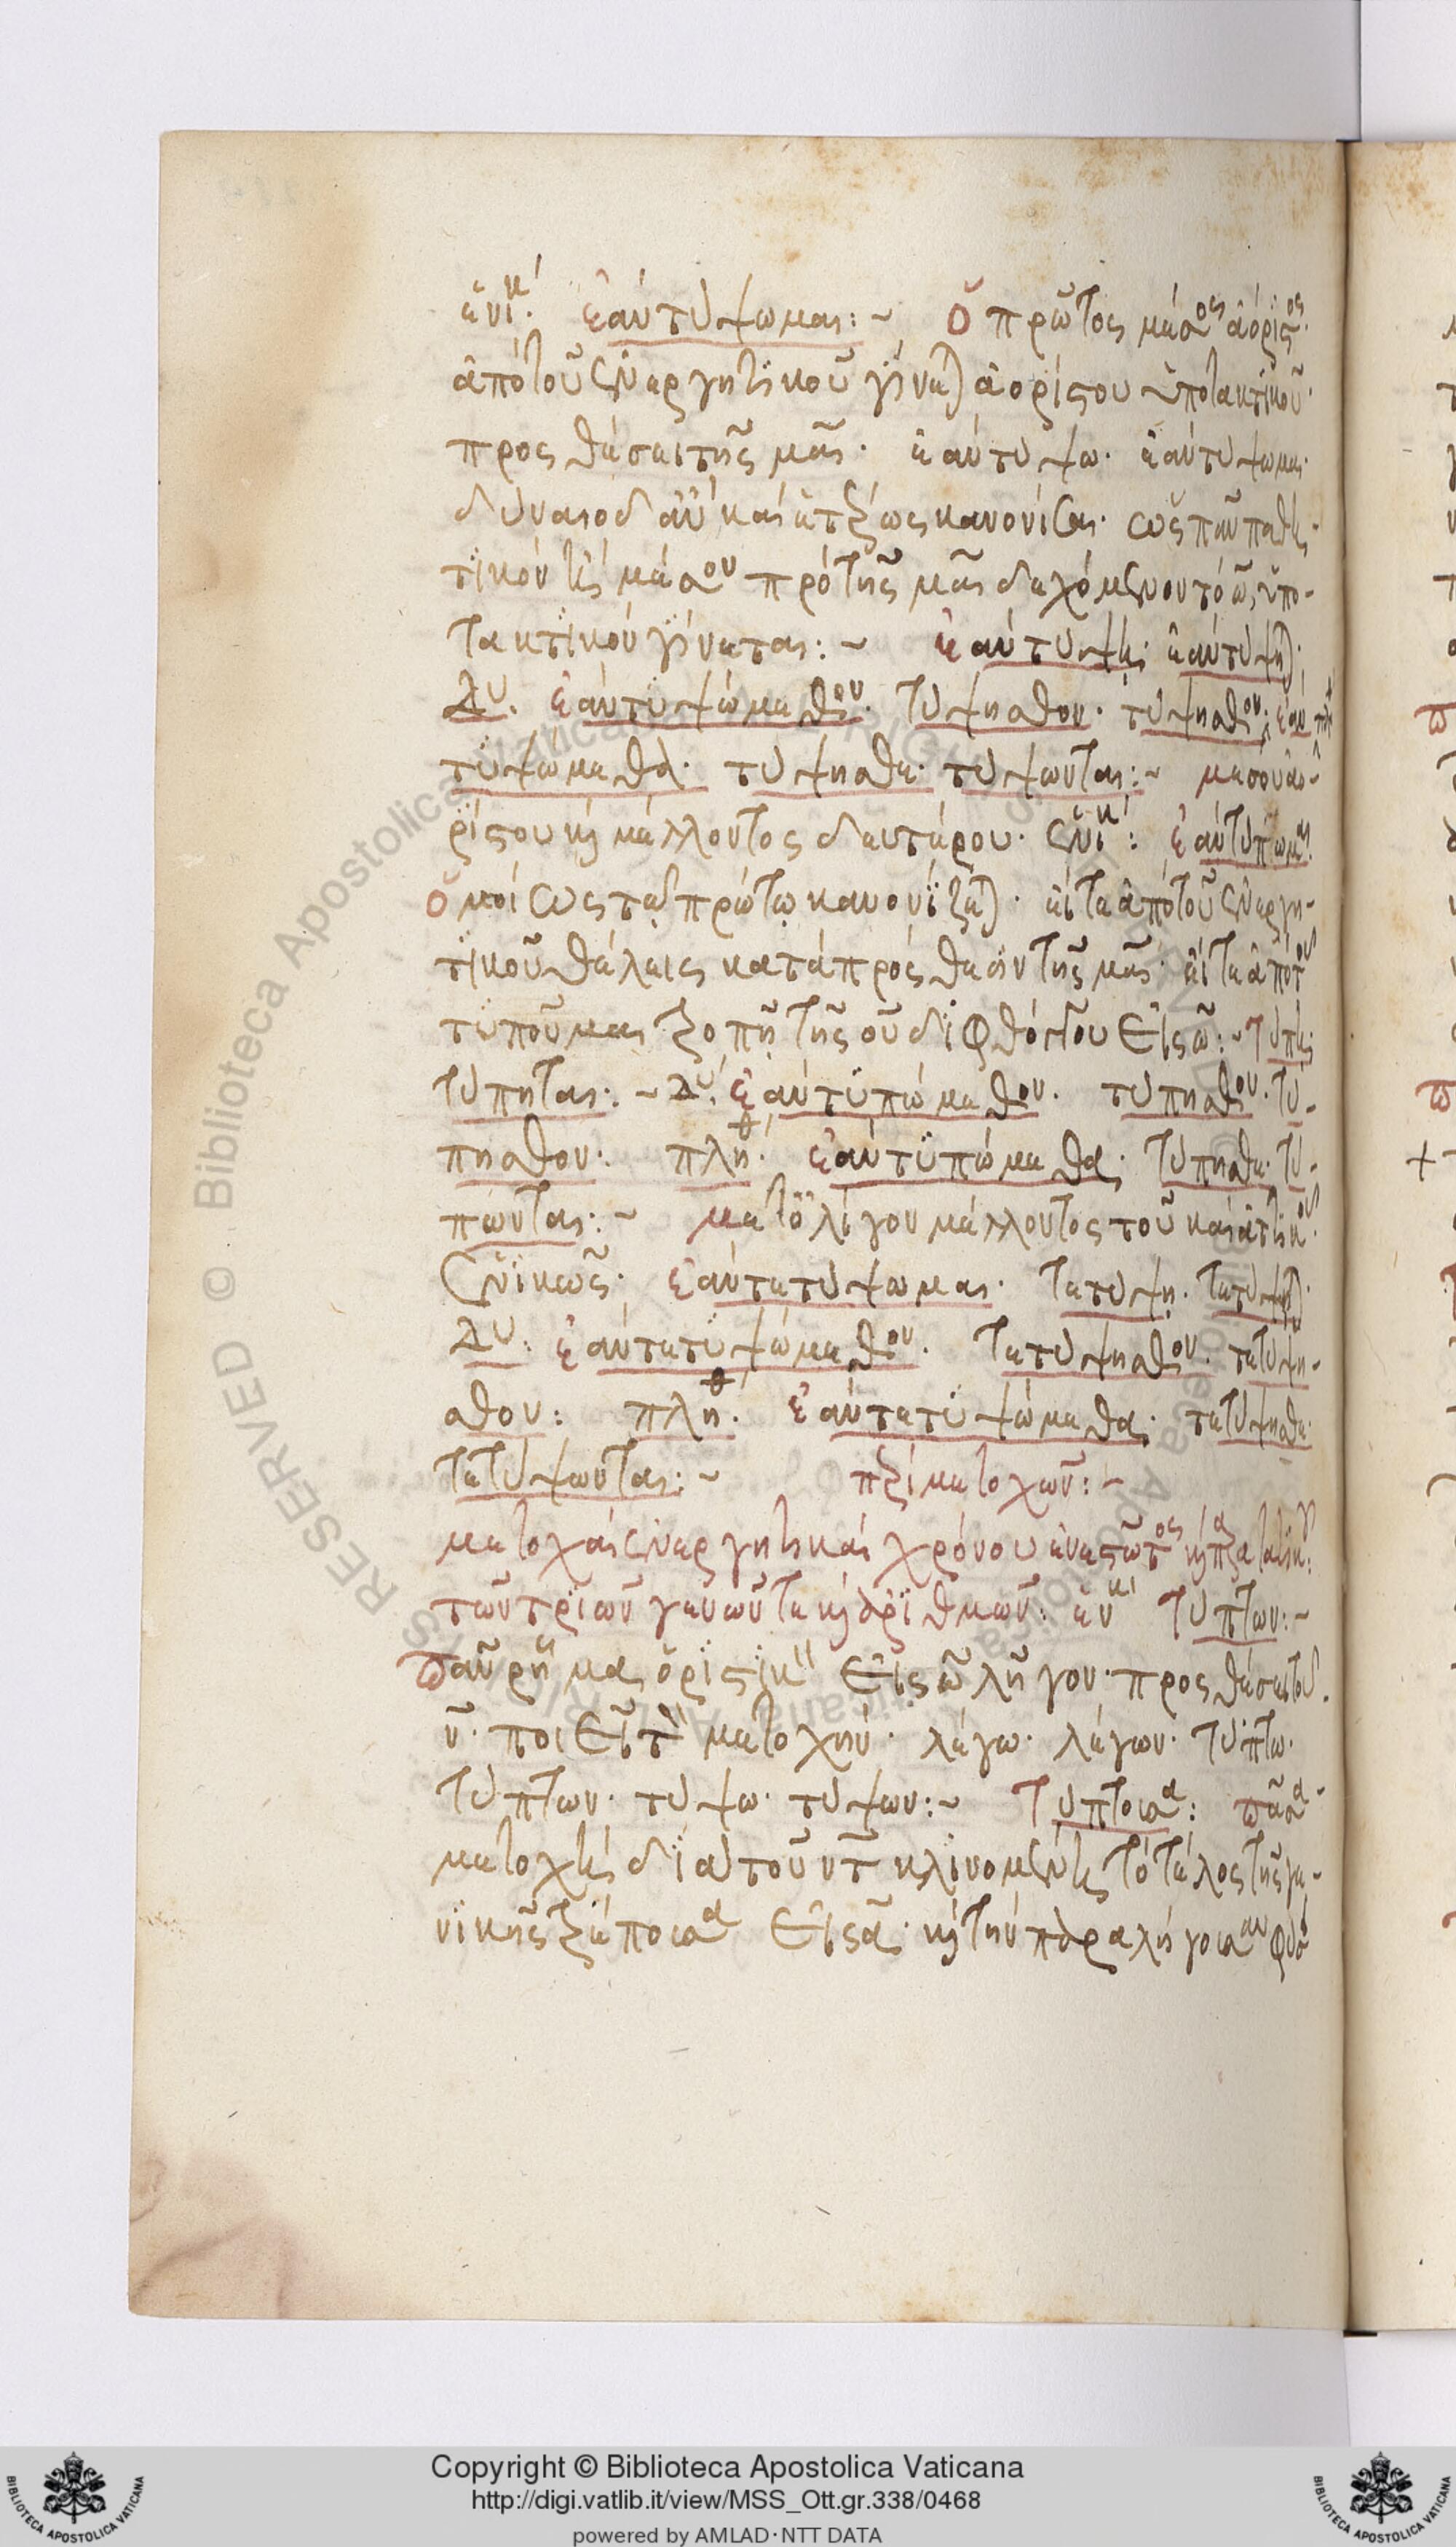 ἑνικ. ἐὰν τύψωμαι:~ ὁ πρῶτος μέσος ἀόριστος
ἀπὸ τοῦ ἐνεργητικοῦ γίνεται ἀορίστου ὑποτακτικοῦ
προσθέσει τῆς μαι. ἐὰν τύψω. ἐὰν τύψωμαι.
δύναιο δ' ἂν καὶ ἑτέρως κανονίσαι. ὡς πᾶν παθη-
τικὸν ἢ μέσον πρὸ τῆς μαι δεχόμενον τὸ ω, ὑπο-
τακτικὸν γίνεται:~ ἐὰν τύψῃ. ἐὰν τύψηται.
Δυ. ἐὰν τυψώμεθον. τύψησθον. τύψησθον. ἐὰν
τυψώμεθα. τύψησθε. τύψωνται:~ μέσου ἀο-
ρίστου καὶ μέλλοντος δευτέρου. ἑνικ: ἐὰν τύπωμαι.
ὁμοίως τῷ πρώτῳ κανονίζεται. εἴτε ἀπὸ τοῦ ἐνεργη-
τικοῦ θέλεις κατὰ πρόσθεσιν τῆς μαι. εἴτε ἀπὸ τοῦ
τυποῦμαι τροπῇ τῆς ου διφθόγγου εἰς ω:~ τύπῃ.
τύπηται:~ Δυ. ἐὰν τυπώμεθον. τύπησθον. τύ-
πησθον. πλη. ἐὰν τυπώμεθα. τύπησθε. τύ-
πωνται:~ μετ' ὀλίγον μέλλοντος τοῦ καὶ ἀττικοῦ.
ἑνικῶς. ἐὰν τετύψωμαι. τετύψῃ. τετύψηται.
Δυ. ἐὰν τετυψώμεθον. τετύψησθον. τετύψη-
σθον: πλη. ἐὰν τετυψώμεθα. τετύψησθε.
τετύψωνται:~ περὶ μετοχῶν:~
μετοχαὶ ἐνεργητικαὶ χρόνου ἐνεστῶτος καὶ παρατατικοῦ:
τῶν τριῶν γενῶν τε καὶ ἀριθμῶν: ἑνικ τύπτων:~
πᾶν ῥῆμα ὁριστικὸν εἰς ω λῆγον. προσθέσει τοῦ
ν. ποιεῖ τὴν μετοχήν. λέγω. λέγων. τύπτω.
τύπτων. τύψω. τύψων:~ τύπτουσα: πᾶσα
μετοχὴ διὰ τοῦ ντ κλινομένη τὸ τέλος τῆς γε-
νικῆς τρέπουσα εἰς α. καὶ τὴν παραλήγουσαν φύσει